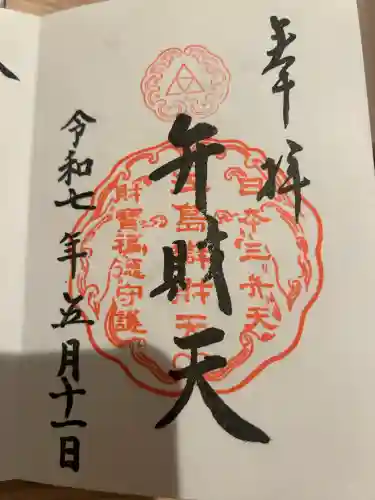 奉拝
日本三弁天
弁財天
江島辨財天
財寶福徳守護
令和七年五月十一日